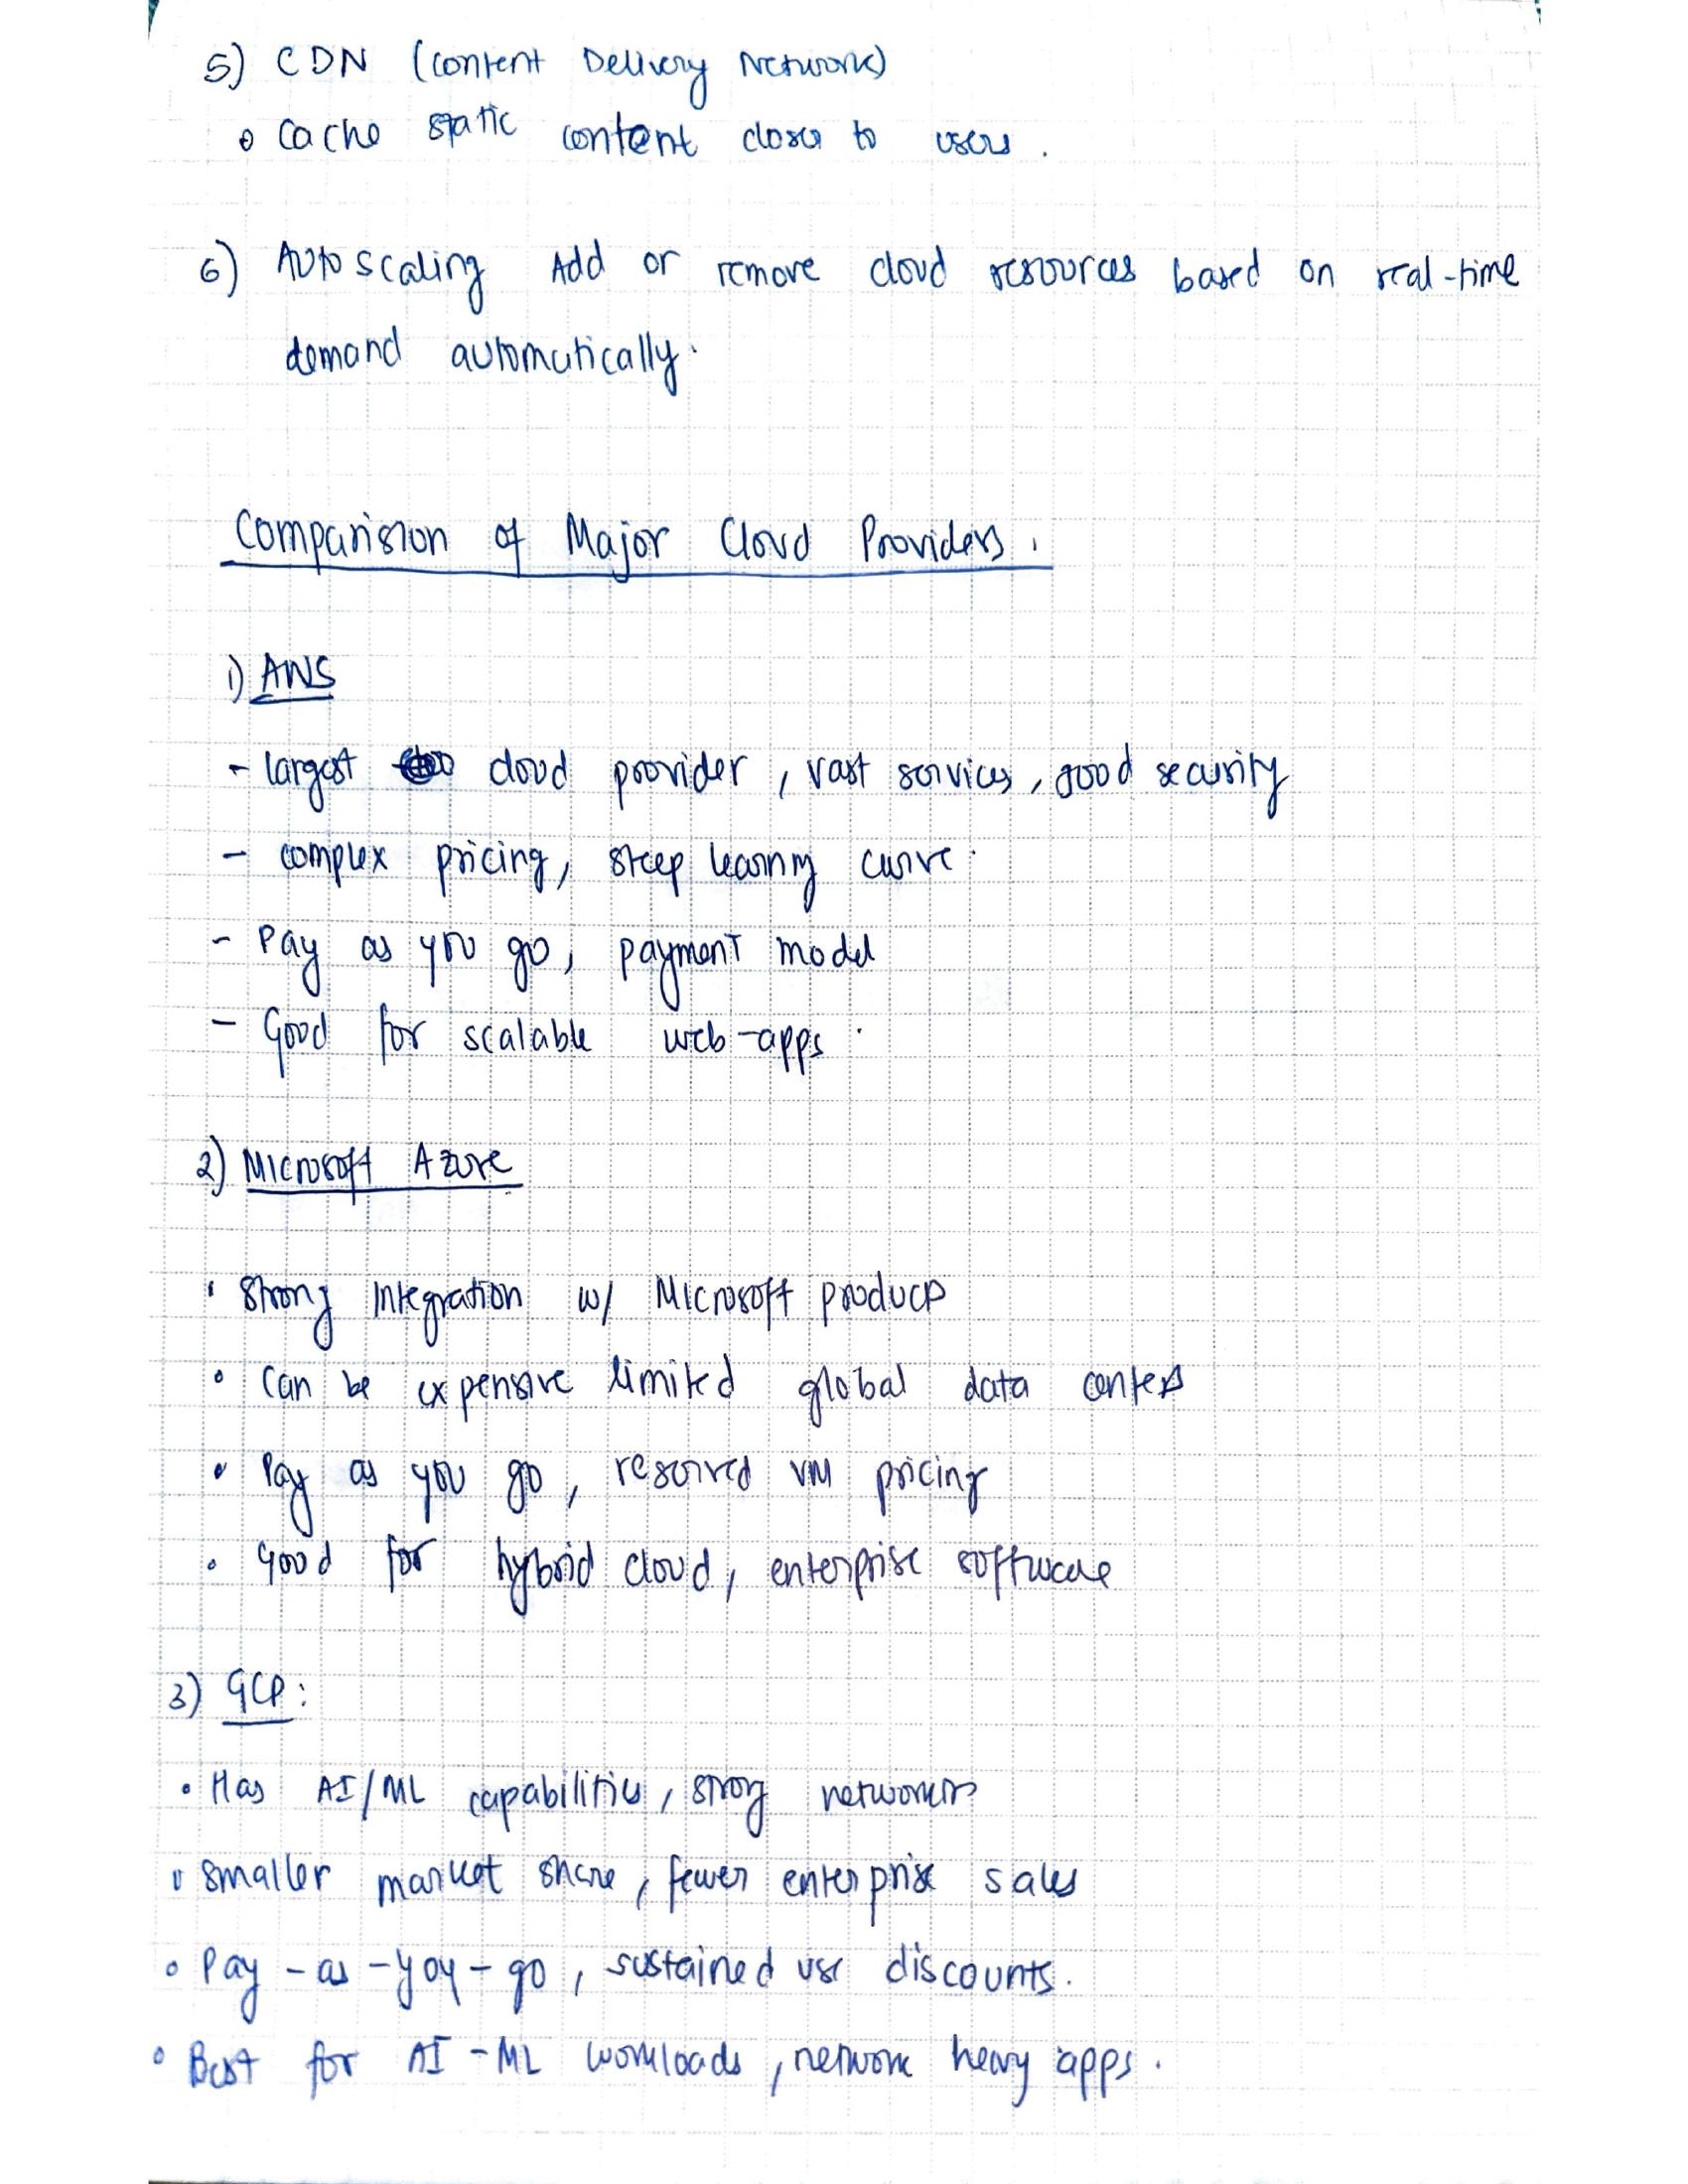 5) CDN (Content Delivery Network)
• Cache static content closer to users.
6) Auto scaling Add or remove cloud resources based on real-time
demand automatically.
Comparision of Major Cloud Providers.
1) AWS
- largest cloud provider, vast services, good security
- complex pricing, steep learning curve.
- Pay as you go, payment model
- Good for scalable web-apps.
2) Microsoft Azure
• Strong Integration w/ Microsoft products
• Can be expensive limited global data centers
• Pay as you go, reserved VM pricing
• Good for hybrid cloud, enterprise software
3) GCP:
• Has AI/ML capabilities, strong networks
• Smaller market share, fewer enterprise sales
• Pay-as-yoy-go, sustained use discounts.
• Best for AI-ML workloads, network heavy apps.